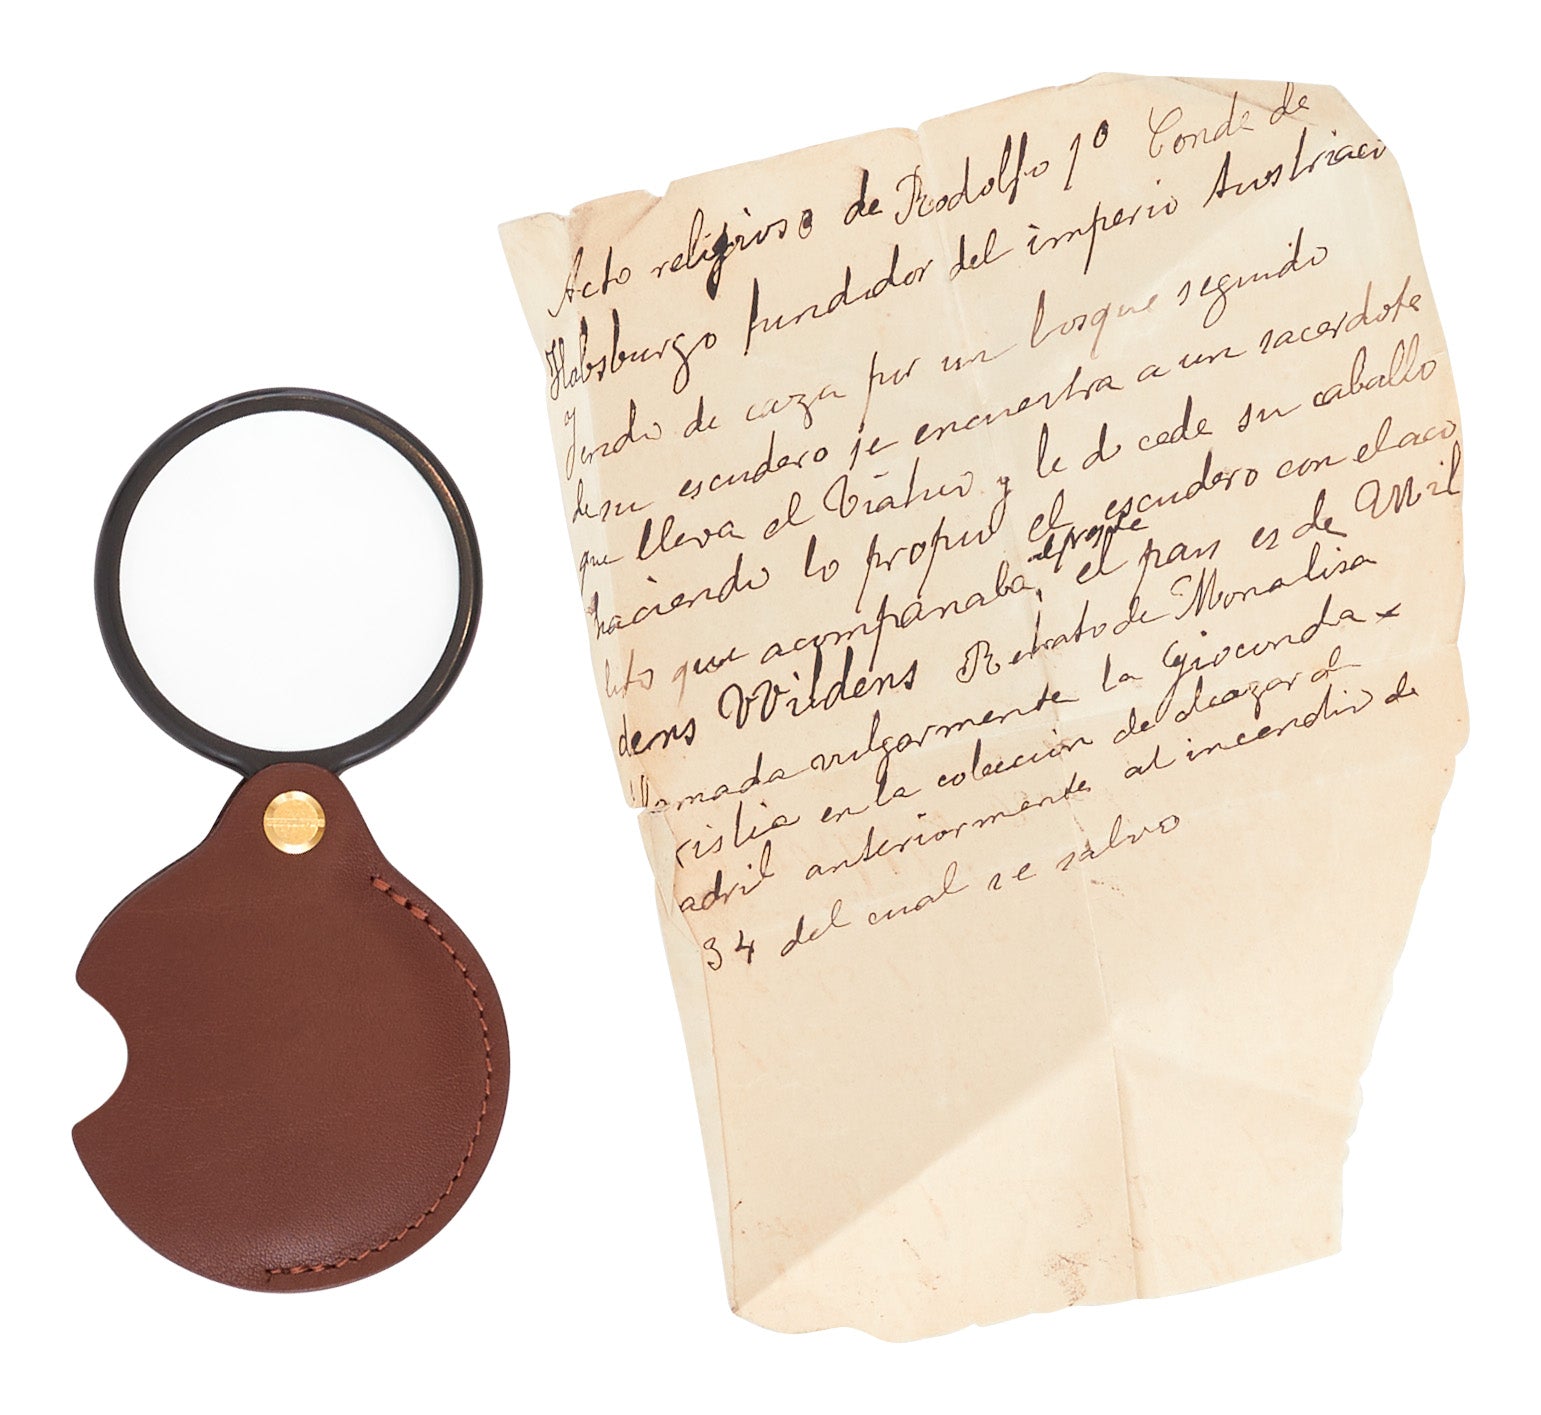 Acto religioso de Rodolfo 1º Conde de
Habsburgo fundador del imperio Austriaco
y
yendo de caza por un bosque seguido
de su escudero se encuentra a un sacerdote
que lleva el Viatico y le d cede su caballo
haciendo lo propio el escudero con el aco
lito que acompanaba, el pais es de Wil
dens Wildens Retrato de Monalisa
llamada vulgarmente la Gioconda x
xistia en la coleccion de alcazar d
adril anteriormente al incendio de
34 del cual se salvo